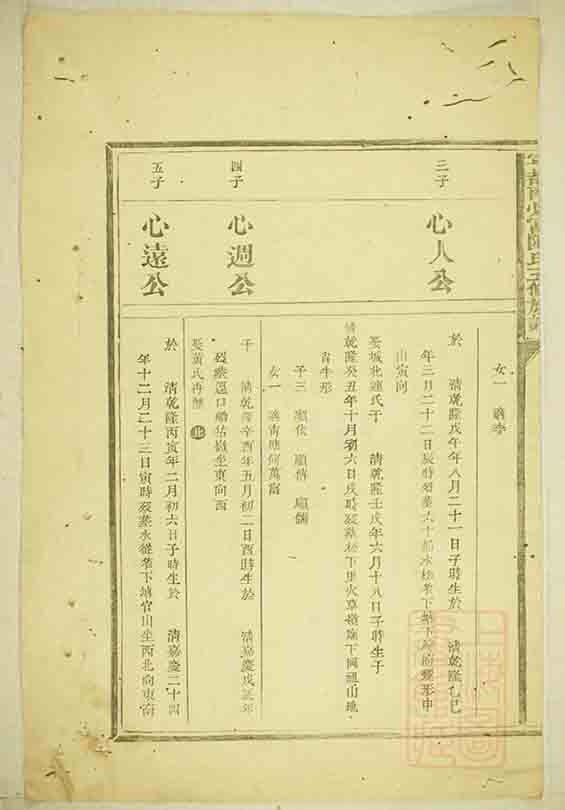 女一 適李
三子
心人公
於 清乾隆戊午年八月二十一日子時生於 清乾隆乙巳
年三月二十二日辰時歿葬六十都水松孝下坳下形申
山寅向
娶城北連氏于 清乾隆壬戌年六月十八日子時生于
清乾隆癸丑年十月初六日戌時歿葬松下里火草嶺庵下同祖山地
眠牛形
子三 顯 顯 顯
女一 適何萬
四子
心週公
于 清乾隆辛酉年五月初二日酉時生於 清嘉慶戊辰年
歿葬口坐東向西
娶黃氏再醮
五子
心遠公
於 清乾隆丙寅年二月初六日子時生於 清嘉慶二十四
年十二月二十三日寅時歿葬水從孝下坳官山坐西北向東南